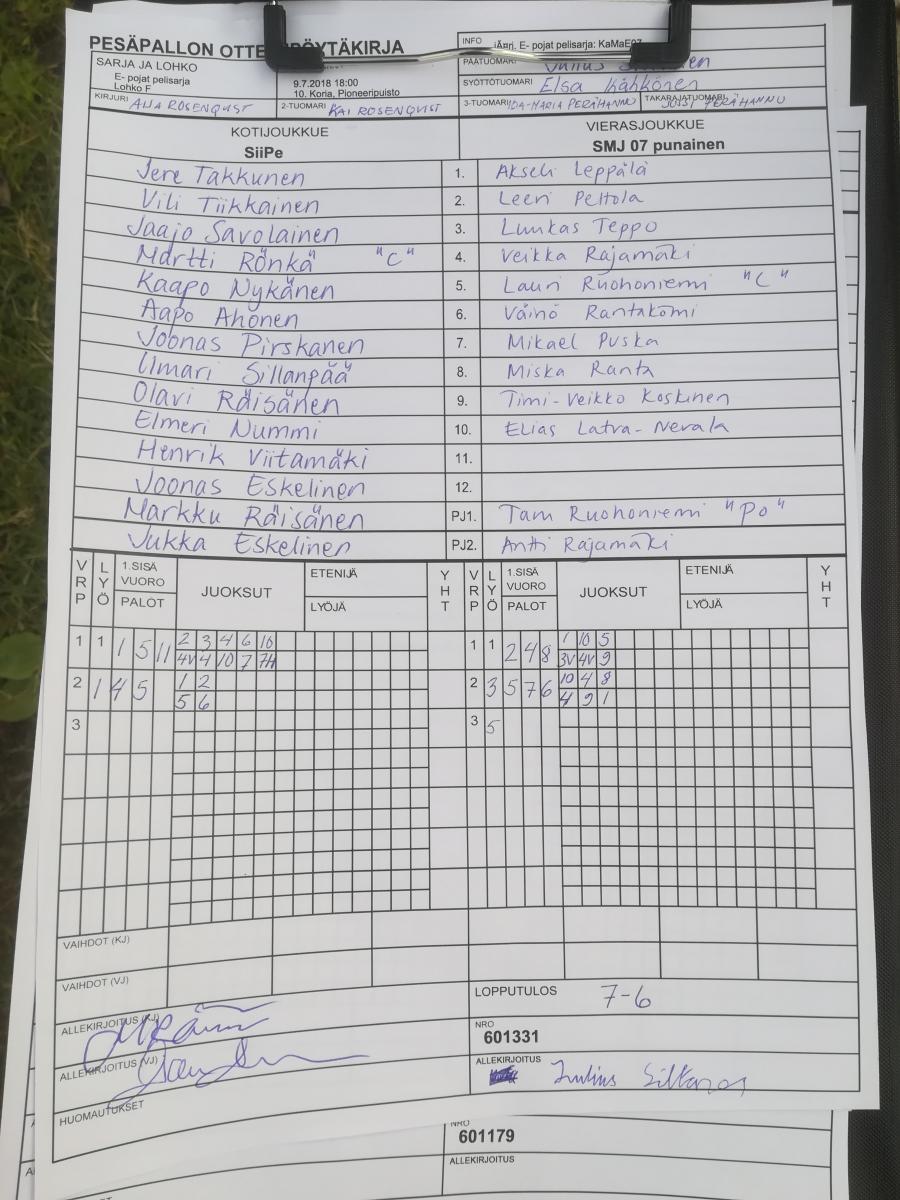 PESÄPALLON OTTE PÖYTÄKIRJA
INFO
E- pojat pelisarja: KaMaE07
SARJA JA LOHKO
E- pojat pelisarja
Lohko F
9.7.2018 18:00
10. Koria, Pioneeripuisto
PÄÄTUOMARI
SYÖTTÖTUOMARI Elsa Kähkönen
KIRJURI AIJA ROSENQVIST
2-TUOMARI KAI ROSENQVIST
3-TUOMARI IDA-MARIA PERÄHANNU
TAKARAJATUOMARI JUSSI PERÄHANNU
KOTIJOUKKUE
SiiPe
VIERASJOUKKUE
SMJ 07 punainen
Jere Takkunen 1. Akseli Leppälä
Vili Tiikkainen 2. Leevi Peltola
Jaajo Savolainen 3. Luukas Teppo
Martti Rönkä "C" 4. Veikka Rajamäki
Kaapo Nykänen 5. Lauri Ruohoniemi "C"
Aapo Ahonen 6. Väinö Rantakömi
Joonas Pirskanen 7. Mikael Puska
Ilmari Sillanpää 8. Miska Ranta
Olavi Räisänen 9. Timi-Veikko Koskinen
Elmeri Nummi 10. Elias Latva-Nevala
Henrik Viitamäki 11.
Joonas Eskelinen 12.
Markku Räisänen PJ1. Tam Ruohoniemi "Po"
Jukka Eskelinen PJ2. Antti Rajamäki
VRP LYÖ 1.SISÄ VUORO PALOT JUOKSUT ETENIJÄ LYÖJÄ YHT VRP LYÖ 1.SISÄ VUORO PALOT JUOKSUT ETENIJÄ LYÖJÄ YHT
1 1 1 5 11 2 3 4 6 10 1 1 2 4 8 1 10 5
4V 4 10 7 7H 3V 4V 9
2 1 4 5 1 2 2 3 5 7 6 10 4 8
5 6 4 9 1
3 3 5
VAIHDOT (KJ)
VAIHDOT (VJ)
LOPPUTULOS 7-6
ALLEKIRJOITUS (KJ)
NRO
601331
ALLEKIRJOITUS (VJ)
ALLEKIRJOITUS Julius Siltanen
HUOMAUTUKSET
NRO
601179
ALLEKIRJOITUS